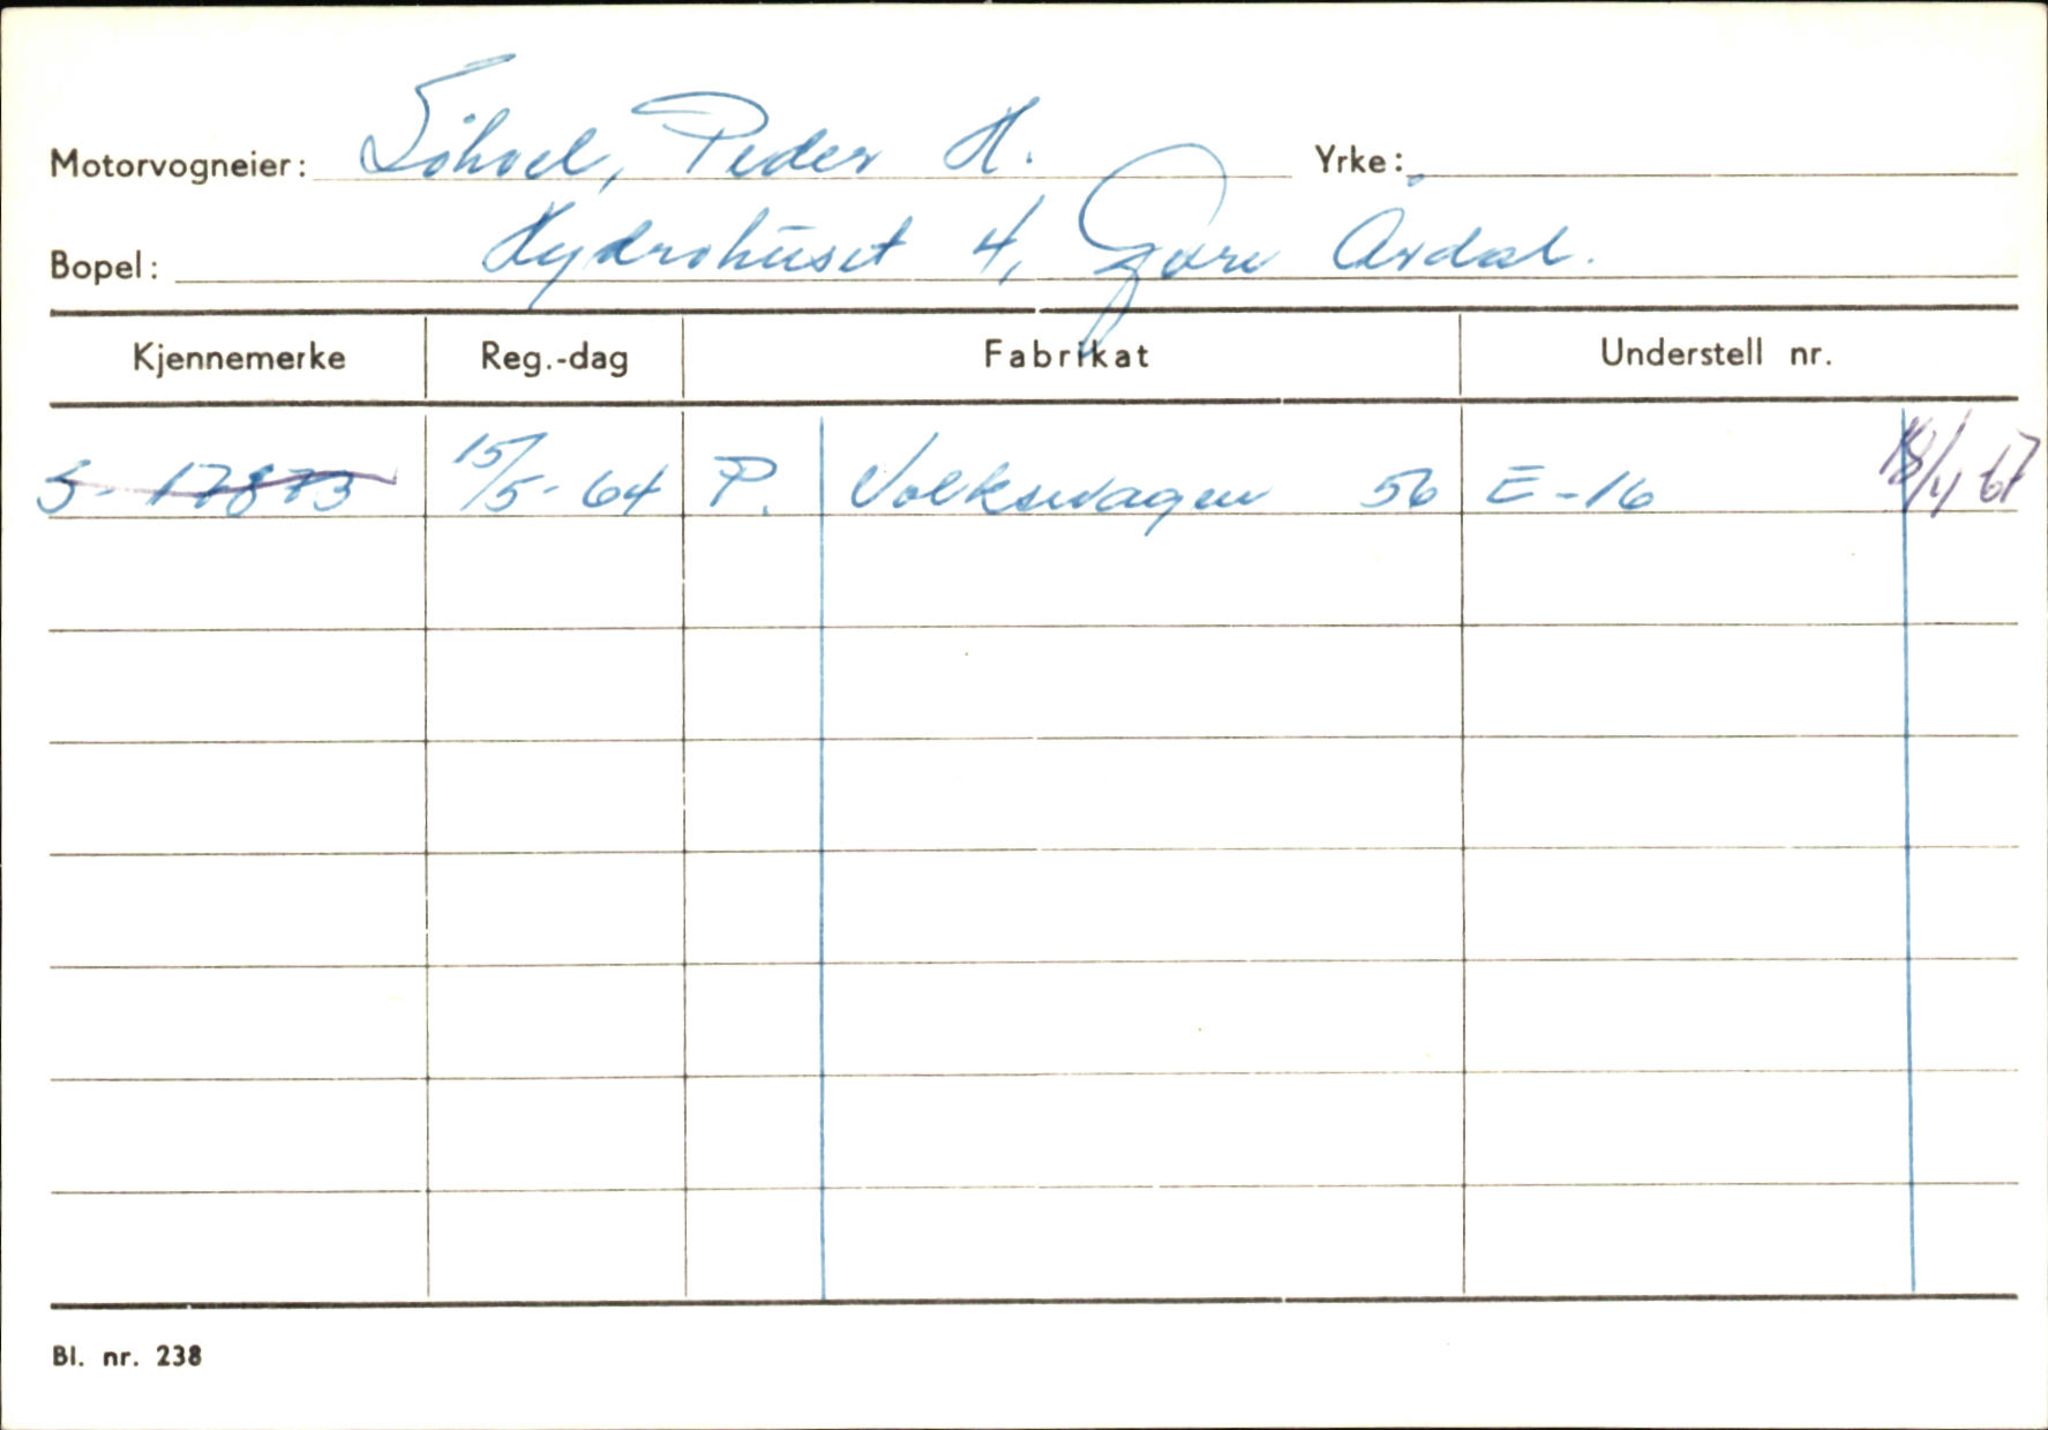 Motorvogneier: Söhoel, Peder H. Yrke:
Bopel: Hydrohuset 4, Øvre Årdal.
Kjennemerke Reg.-dag Fabrikat Understell nr.
S- 17873 15/5-64 P. Volkswagen 56 E-16 18/4 67
Bl. nr. 238